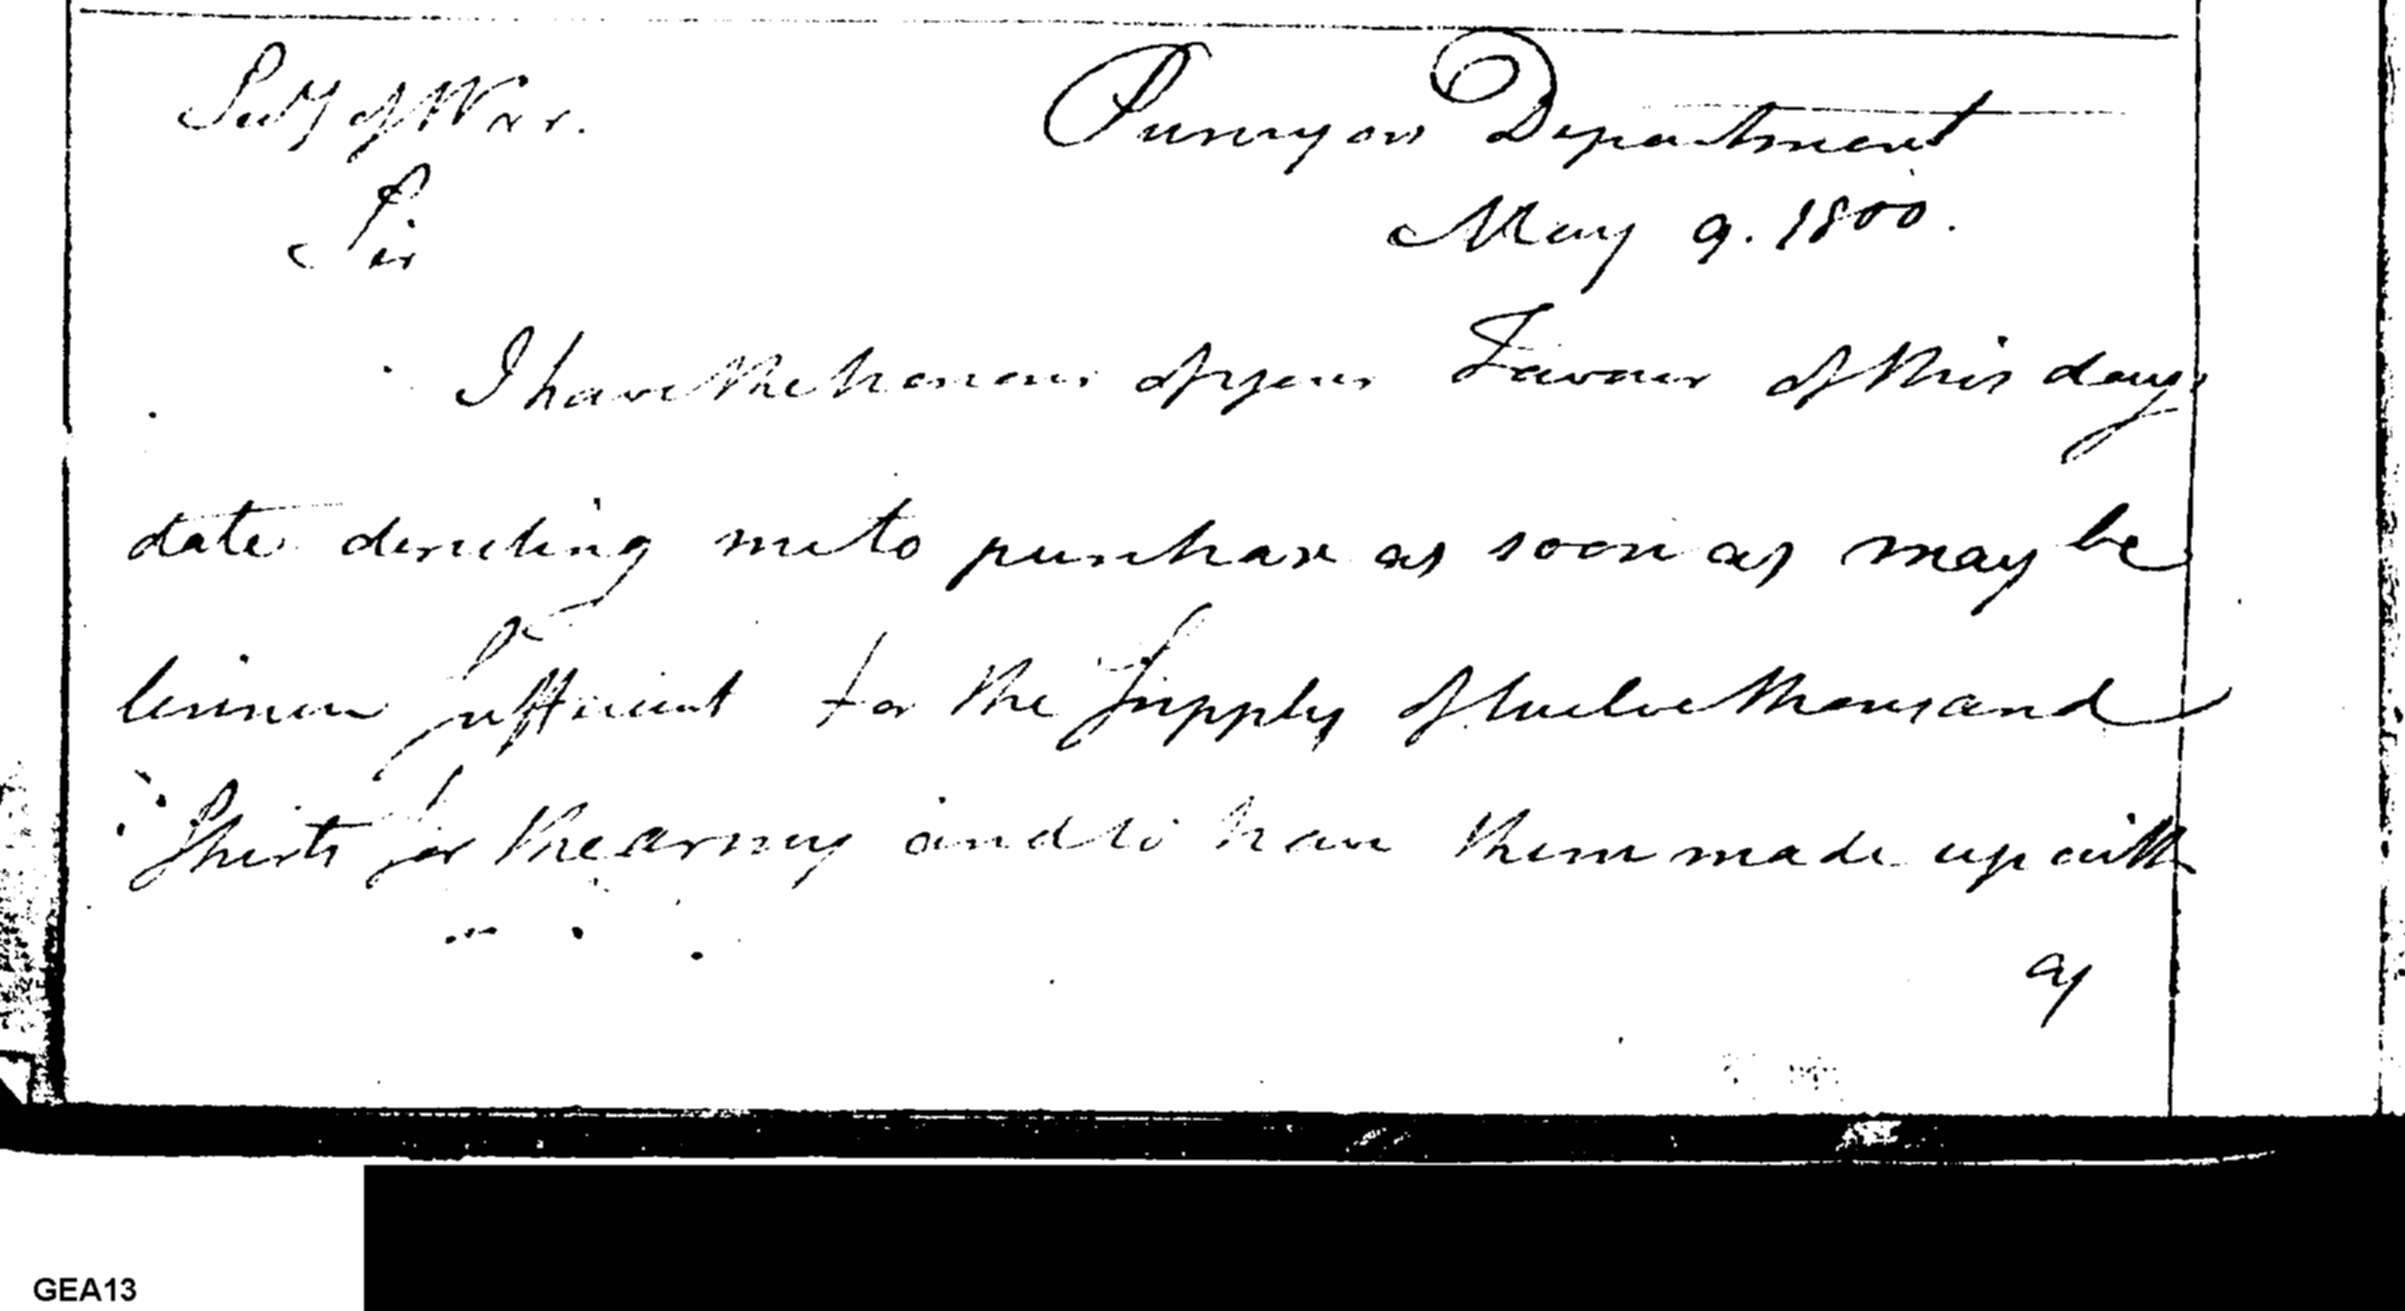 Secy of War. Purveyors Department
Sir May 9. 1800.
I have the honour of your Favour of this day
date directing me to purchase as soon as may be
linnen sufficient for the Supply of twelve thousand
Shirts for the army and to have them made up with
as
GEA13